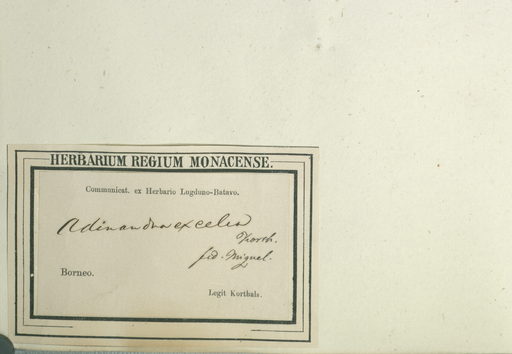 HERBARIUM REGIUM MONACENSE.
Communicat. ex Herbario Lugduno-Batavo.
Adinandra excelsa
Korth.
fid. Miquel.
Borneo.
Legit Korthals.